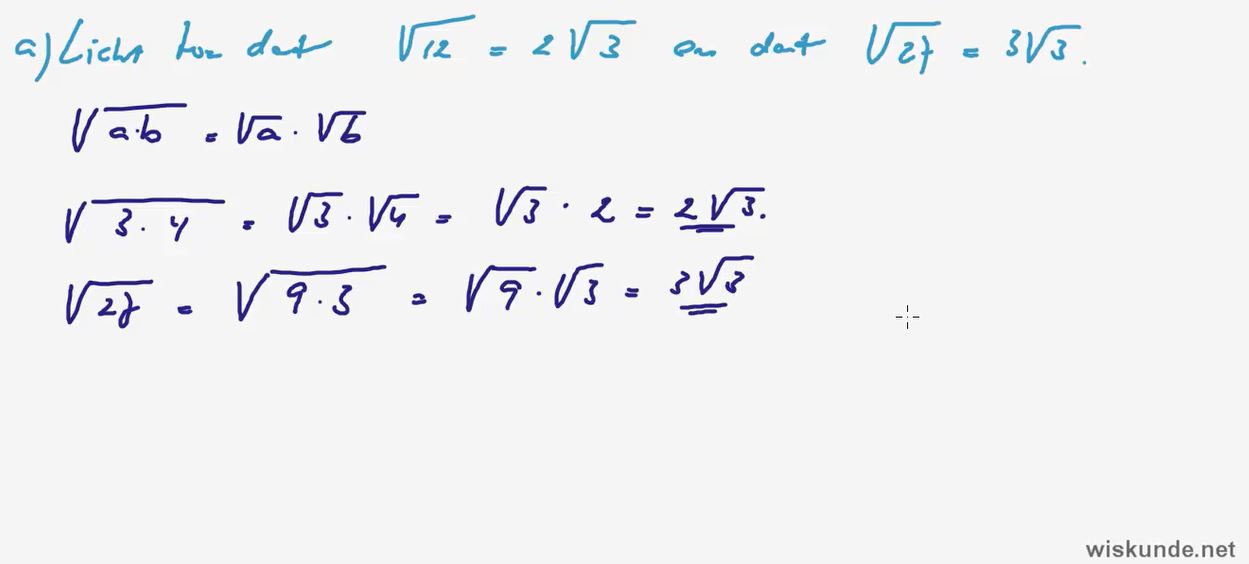 a) Licht toe dat √12 = 2√3 en dat √27 = 3√3.
√a·b = √a · √b
√3·4 = √3 · √4 = √3 · 2 = 2√3.
√27 = √9·3 = √9 · √3 = 3√3
wiskunde.net